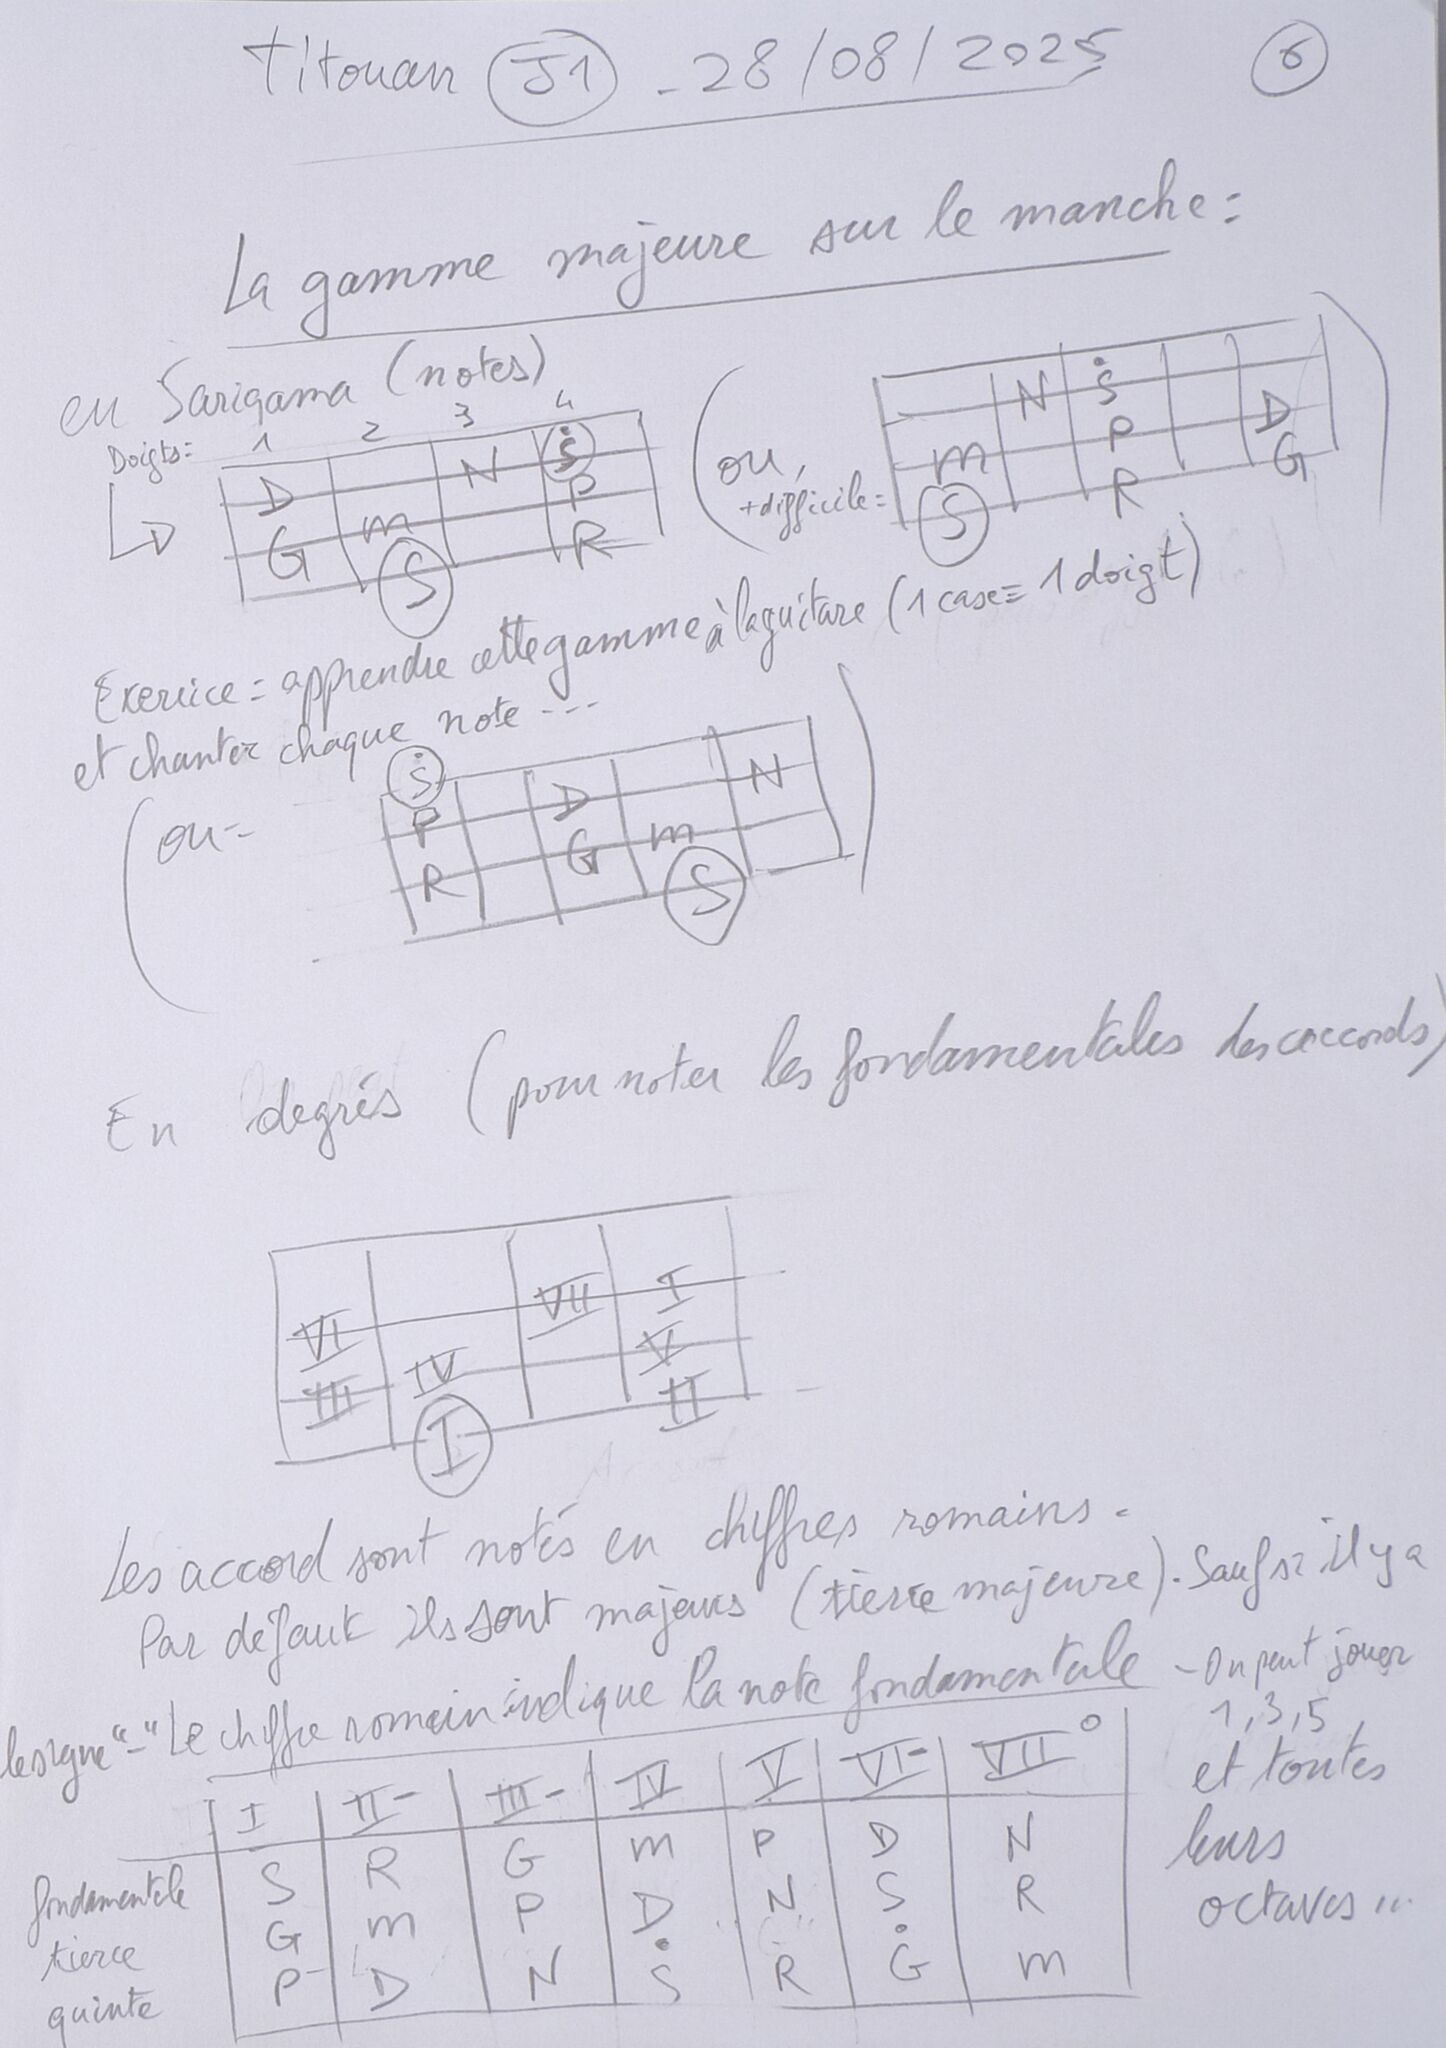 Titouan J1 - 28/08/2025 6
La gamme majeure sur le manche :
en Sarigama (notes)
Doigts : 1 2 3 4
D N Ṡ
G m P
S R
(ou, + difficile =
N Ṡ
m P D
S R G)
Exercice = apprendre cette gamme à la guitare (1 case = 1 doigt)
et chanter chaque note ---
(ou -
Ṡ D N
P G m
R S)
En degrés (pour noter les fondamentales des accords)
VI VII I
III IV V
I II
Les accord sont notés en chiffres romains.
Par défaut ils sont majeurs (tierce majeure). Sauf si il y a
le signe "-" Le chiffre romain indique la note fondamentale - On peut jouer
1, 3, 5,
et toutes
leurs
octaves...
I II- III- IV V VI- VII°
fondamentale S R G m P D N
tierce G m P D N Ṡ R
quinte P D N Ṡ R Ġ m